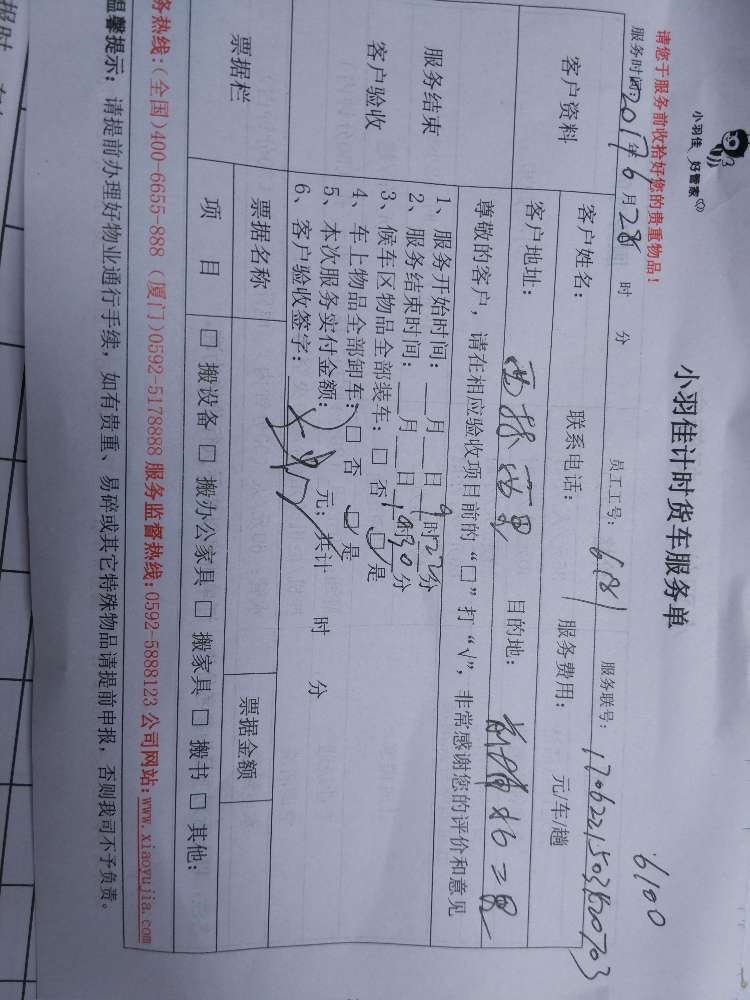 小羽佳 好管家
小羽佳计时货车服务单
6100
请您于服务前收拾好您的贵重物品!
服务时间:2017年6月28 时 分 员工工号:6181 服务联号:
客户资料
客户姓名: 联系电话: 服务费用: 元/车/趟
客户地址: 目的地:
尊敬的客户,请在相应验收项目前的“□”打“√”,非常感谢您的评价和意见
服务结束
客户验收
1、服务开始时间:__月__日9时22分
2、服务结束时间:__月__日10时30分
3、候车区物品全部装车:□ 否 □ 是
4、车上物品全部卸车:□ 否 □ 是
5、本次服务实付金额: 元;共计 时 分
6、客户验收签字:
票据栏
票据名称 票据金额
项 目 □ 搬设备 □ 搬办公家具 □ 搬家具 □ 搬书 □ 其他:
务热线:(全国)400-6655-888 (厦门)0592-5178888 服务监督热线:0592-5888123 公司网站:www.xiaoyujia.com
温馨提示:请提前办理好物业通行手续,如有贵重、易碎或其它特殊物品请提前申报,否则我司不予负责。